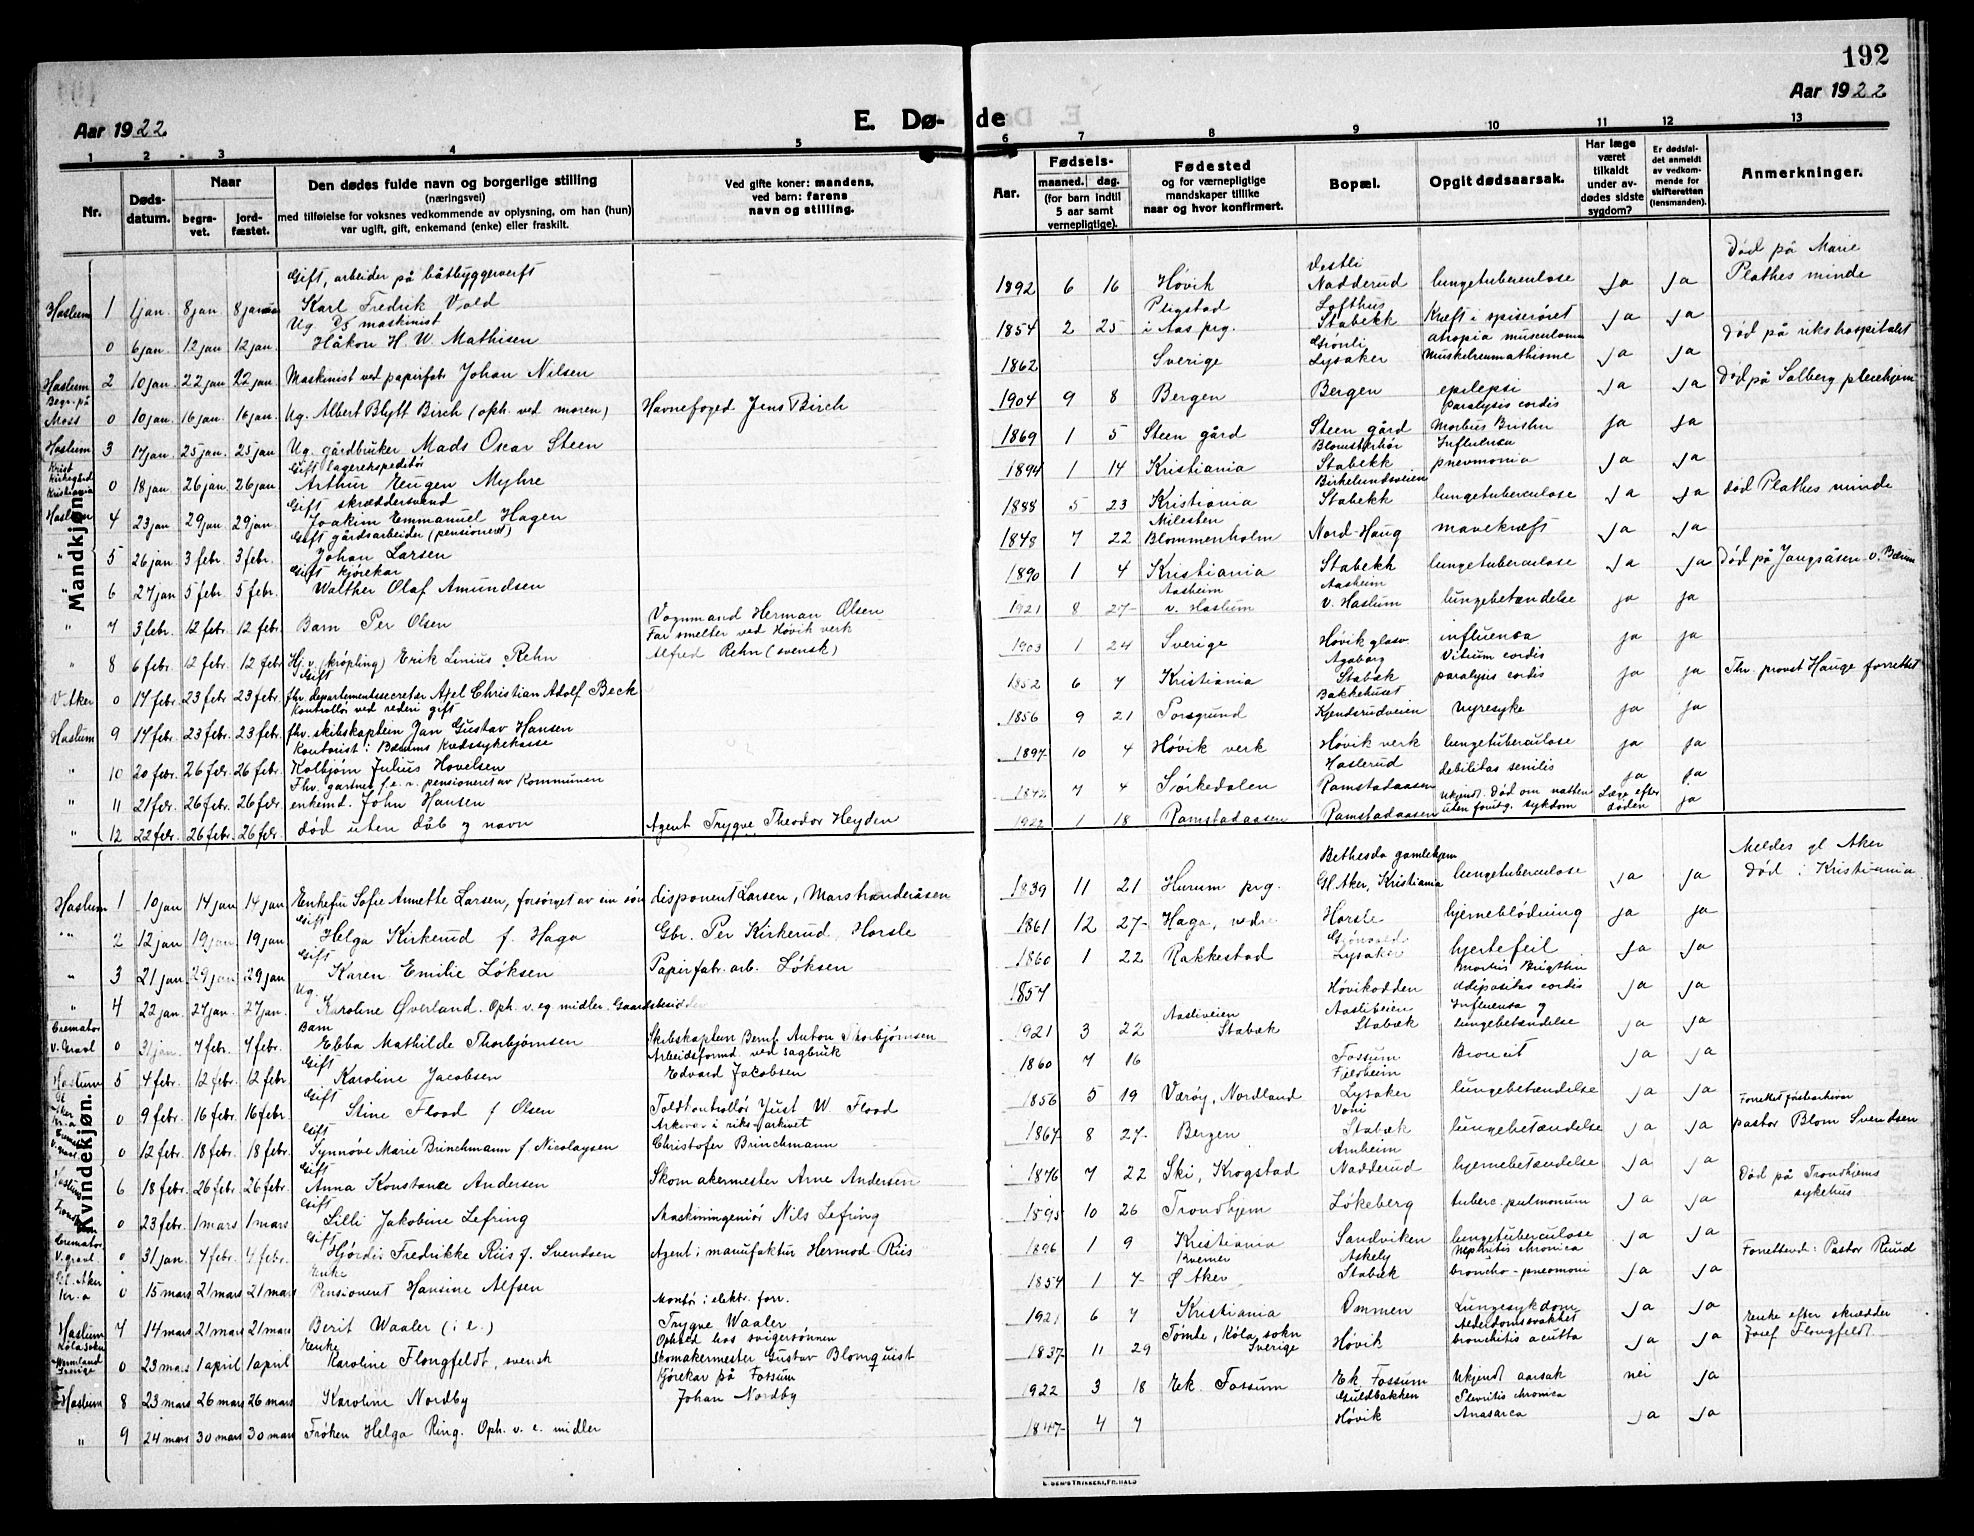 192
Aar 1922
E. Dø-
de
Aar 1922
1 2 3 4 5 6 7 8 9 10 11 12 13
Nr.
Døds-
datum.
Naar
begra-
vet.
jord-
fæstet.
Den dødes fulde navn og borgerlige stilling
(næringsvei)
med tilføielse for voksnes vedkommende av oplysning, om han (hun)
var ugift, gift, enkemand (enke) eller fraskilt.
Ved gifte koner: mandens,
ved barn: farens
navn og stilling.
Aar.
Fødsels-
maaned. dag.
(for barn indtil
5 aar samt
vernepligtige).
Fødested
og for værnepligtige
mandskaper tillike
naar og hvor konfirmert.
Bopæl.
Opgit dødsaarsak.
Har læge
været
tilkaldt
under av-
dødes sidste
sygdom?
Er dødsfal-
det anmeldt
av vedkom-
mende for
skifteretten
(lensmanden).
Anmerkninger.
Mandkjøn.
Haslum 1 1 jan. 8 jan 8 januar Gift, arbeider på båtbyggerverft
Karl Fredrik Vold 1892 6 16 Høvik Vestli
Nadderud lungetuberculose Ja Ja Død på Marie
Plathes minde
0 6 jan. 12 jan 12 jan. Ug. maskinist
Håkon H. W. Mathisen 1854 2 25 i Aas prg. Lofthus
Stabekk Kræft i spiserøret Ja Ja
Haslum 2 10 jan. 22 jan 22 jan. Maskinist ved papirfabr Johan Nilsen 1862 Sverige Grønli
Lysaker atropia musculorum
Muskelreumathisme Ja Ja død på rikshospitalet
Begr. på
Moss 0 10 jan. 16 jan. 16 jan. Ug. Albert Blytt Birch (oph. ved moren) Havnefoged Jens Birch 1904 9 8 Bergen Bergen epilepsi
paralysis cordis Ja Ja Død på Solberg pleiehjem
Haslum 3 17 jan. 25 jan. 25 jan. Ug. gårdbruker Mads Oscar Steen 1869 1 5 Steen gård Steen gård Ja Ja
Krist
Kirkegård
Kristiania 0 18 jan. 26 jan. 26 jan. Gift lagerekspeditør
Arthur Eugen Myhre 1894 1 14 Kristiania Stabekk Influensa
pneumonia Ja Ja
Haslum 4 23 jan 29 jan 29 jan. Gift skræddersvend
Joakim Emmanuel Hagen 1888 5 23 Kristiania Birkelundsveien
Stabekk lungetuberculose Ja Ja død Plathes minde
" 5 26 jan 3 febr. 3 febr. Gift gårdsarbeider (pensioneret)
Johan Larsen 1848 7 22 Blommenholm Nord-Haug mavekræft Ja Ja
" 6 27 jan 5 febr. 5 febr. Gift kjørekar
Walther Olaf Amundsen 1890 1 4 Kristiania Stabekk lungetuberculose Ja Ja
" 7 3 febr. 12 febr. 12 febr. Barn Per Olsen Vognmand Herman Olsen 1921 8 27 Aasheim
v. Haslum Aasheim
v. Haslum lungebetændelse Ja Ja
" 8 6 febr. 12 febr. 12 febr Hj.v. (krøpling) Erik Linius Rehn Far smelter ved Høvik verk
Alfred Rehn (svensk) 1903 1 24 Sverige Høvik glasv. influensa Ja Ja
V. Aker 0 17 febr. 23 febr. 23 febr. Gift
fhv. departementssecretær Axel Christian Adolf Beck 1852 6 7 Kristiania Stabæk Vitium cordis
paralysis cordis Ja Ja Fhv. provst Hauge forrettet
Haslum 9 17 febr. 23 febr. 23 febr. Kontrollør ved rederi gift
fhv. skibskaptein Jan Gustav Hansen 1856 9 21 Porsgrund Bakkehuset
Kjendsrudveien nyresyke Ja Ja
" 10 20 febr. 26 febr. 26 febr. Kontorist i Bærums Kredssykekasse
Kolbjørn Julius Hovelsen 1897 10 4 Høvik verk Høvik verk lungetuberculose Ja Ja
" 11 21 febr. 26 febr. 26 febr. Fhv. gartner f.e.v. pensioneret av Kommunen
enkemd. John Hansen 1842 7 4 Sørkedalen Haslerud
Ramstadaasen debilitas senilis Ja Ja
" 12 22 febr. 26 febr. 26 febr. død uten dåb og navn Agent Trygve Theodor Heyden 1922 1 18 Ramstadaasen Ramstadaasen Ukjendt. Død om natten
uten foutg. sykdom Læge efter
døden Ja
Kvindekjøn.
Haslum 1 10 jan 14 jan 14 jan Enkefru Sofie Annette Larsen, forsørget av sin søn disponent Larsen, Marstranderåsen 1839 11 21 Hurum prg. Bethesda gamlehjem
Gl. Aker, Kristiania lungetuberculose Ja Ja Meldes gl Aker
Død i Kristiania
" 2 12 jan 19 jan 19 jan Gift
Helga Kirkerud f. Haga Gbr. Per Kirkerud, Horsle 1861 12 27 Haga, nedre Horsle hjerneblødning Ja Ja
" 3 21 jan 29 jan 29 jan Gift
Karen Emilie Løksen Papirfabr. arb. Løksen 1860 1 22 Rakkestad Lysaker hjertefeil Ja Ja
" 4 22 jan. 27 jan 27 jan. Ug
Karoline Øverland. Oph. v. eg midler. 1857 Høvikodden adipositas cordis Ja Ja
Cremator
V. Gravl 0 31 jan. 7 febr. 7 febr. Barn
Ebba Mathilde Thorbjørnsen Skibskaptein Bernt Anton Thorbjørnsen 1921 3 22 Aasliveien
Stabæk Aasliveien
Stabæk Influensa og
lungebetændelse Ja Ja
Haslum 5 4 febr. 12 febr. 12 febr Gift
Karoline Jacobsen Arbeidsformd ved sagbruk
Edvard Jacobsen 1860 7 16 Fossum Bronkit Ja Ja
0 9 febr. 16 febr. 16 febr Gift
Stine Flood f Olsen Toldkontrollør Just W. Flood 1856 5 19 Værøy, Nordland Fjelheim
Lysaker lungebetændelse Ja Ja
0 12 febr. 18 febr. 18 febr. Gift
Synnøve Marie Brinchmann f. Nicolaysen Arkivar i riksarkivet
Christofer Brinchmann 1867 8 27 Bergen Voni
Stabæk lungebetændelse Ja Ja
pastor Blom Svendsen
Haslum 6 18 febr. 26 febr. 26 febr. Gift
Anna Konstanse Andersen Skomakermester Arne Andersen 1876 7 22 Ski, Krogstad Arnheim
Nadderud hjernebetændelse Ja Ja
0 23 febr. 1 mars 1 mars Gift
Lilli Jakobine Lefring Maskiningeniør Nils Lefring 1895 10 26 Trondhjem Løkeberg tuberc. pulmonum Ja Ja Død på Trondhjems
sykehus
Cremator
V. gravl. 0 31 jan. 4 febr. 4 febr. Gift
Hjørdis Fredrikke Riis f. Svendsen Agent i manufaktur Hermod Riis 1896 1 9 Kristiania Sandviken lungetuberculose Ja Ja
Gl. Aker
Kr.a 0 15 mars 21 mars 21 mars Enke
Pensioneret Hansine Alfsen 1854 1 7 Ø Aker Askely
Stabæk Nephritis chronica
broncho-pneumoni Ja Ja Forrettende: Pastor Ruud
Haslum 7 14 mars 21 mars 21 mars Berit Waaler (i e.) Montør i elektr. forr.
Trygve Waaler 1921 6 7 Kristiania Ommen Lungesykdom Ja Ja
0 23 mars 1 april 1 april Enke
Karoline Flongfeldt, svensk Ophold hos svigersønnen
Skomakermester Gustav Blomquist 1837 11 29 Tømte, Köla sokn
Sverige Høvik Alderdomssvakhet
bronchitis acutta Ja Ja Enke efter skrædder
Josef Flongfeldt
Haslum 8 23 mars 26 mars 26 mars Karoline Nordby Kjørekar på Fossum
Johan Nordby 1922 3 18 Ek. Fossum Ek. Fossum Ukjendt aarsak nei Ja
" 9 24 mars 30 mars 30 mars Frøken Helga Ring. Oph. v. e. midler 1847 4 7 Guldbakken
Høvik Plevritis chronica
Anasarca Ja Ja